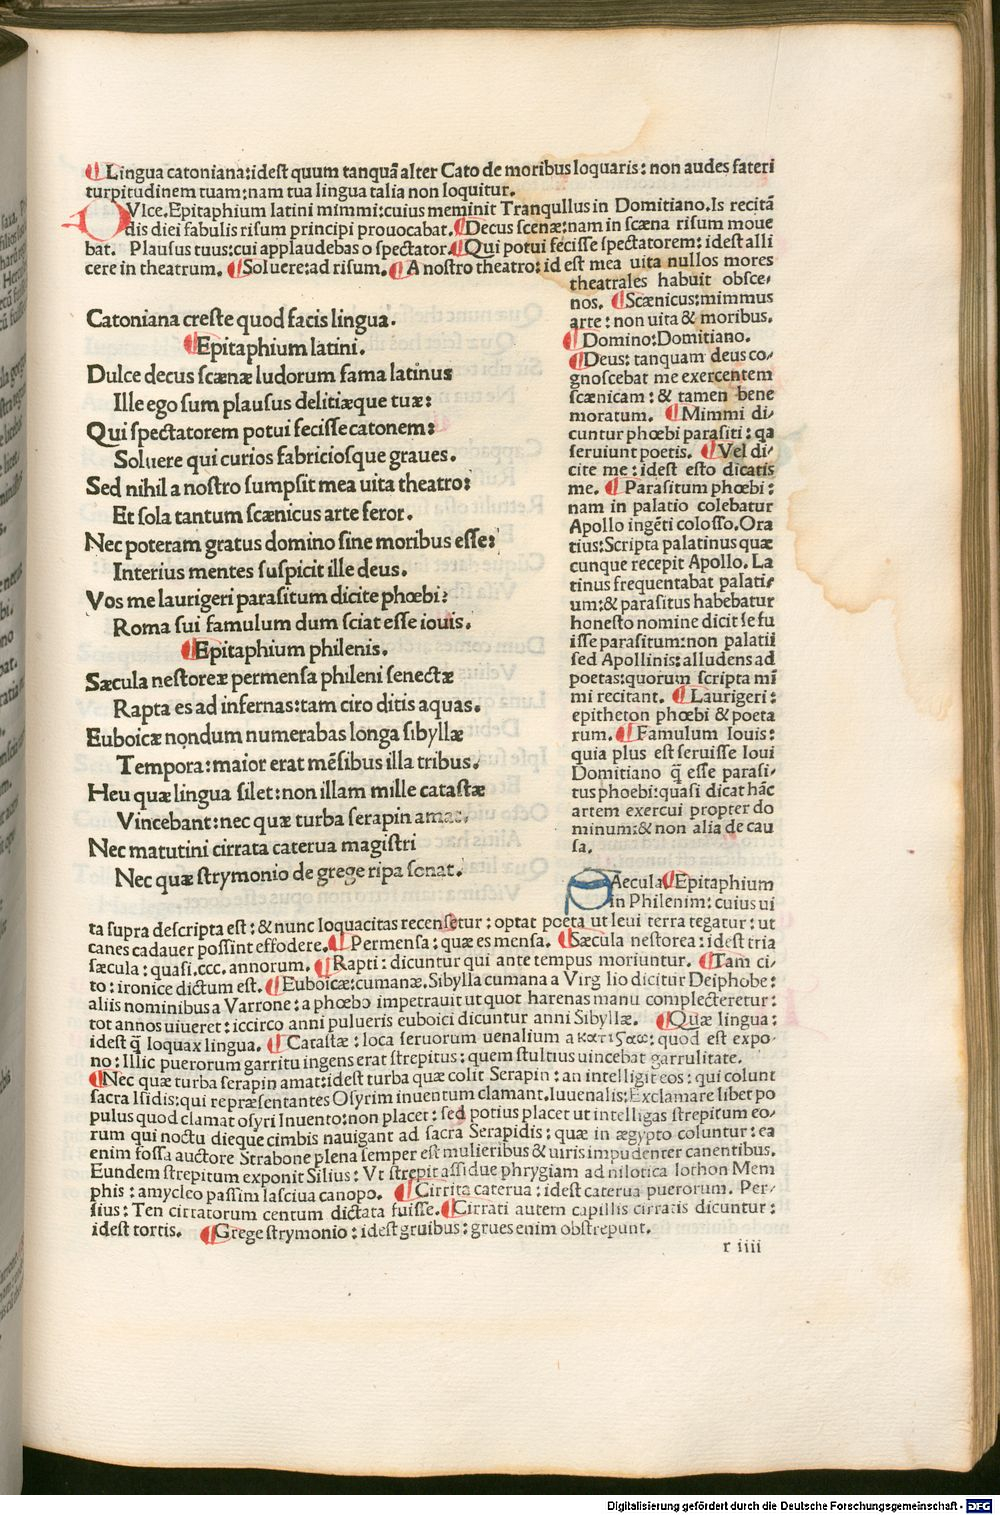 Lingua catoniana:idest quum tanquā alter Cato de moribus loquaris: non audes fateri
turpitudinem tuam:nam tua lingua talia non loquitur.
DVlce.Epitaphium latini mimmi:cuius meminit Tranqullus in Domitiano.Is recitā
dis diei fabulis risum principi prouocabat. Decus scenæ:nam in scæna risum moue
bat. Plausus tuus:cui applaudebas o spectator. Qui potui fecisse spectatorem: idest alli
cere in theatrum. Soluere:ad risum. A nostro theatro: id est mea uita nullos mores
theatrales habuit obsce-
nos. Scænicus:mimmus
arte: non uita & moribus.
Domino:Domitiano.
Deus: tanquam deus co-
gnoscebat me exercentem
scænicam: & tamen bene
moratum. Mimmi di-
cuntur phœbi parasiti: qa
seruiunt poetis. Vel di-
cite me: idest esto dicatis
me. Parasitum phœbi:
nam in palatio colebatur
Apollo ingēti colosso.Ora
tius:Scripta palatinus quæ
cunque recepit Apollo. La
tinus frequentabat palati-
um:& parasitus habebatur
honesto nomine dicit se fu
isse parasitum:non palatii
sed Apollinis:alludens ad
poetas:quorum scripta mī
mi recitant. Laurigeri:
epitheton phœbi & poeta
rum. Famulum Iouis:
quia plus est seruisse Ioui
Domitiano q̄ esse parasi-
tus phoebi:quasi dicat hāc
artem exercui propter do
minum:& non alia de cau
sa.
Catoniana creste quod facis lingua.
Epitaphium latini.
Dulce decus scænæ ludorum fama latinus
Ille ego sum plausus delitiæque tuæ:
Qui spectatorem potui fecisse catonem:
Soluere qui curios fabriciosque graues.
Sed nihil a nostro sumpsit mea uita theatro:
Et sola tantum scænicus arte feror.
Nec poteram gratus domino sine moribus esse:
Interius mentes suspicit ille deus.
Vos me laurigeri parasitum dicite phœbi:
Roma sui famulum dum sciat esse iouis.
Epitaphium philenis.
Sæcula nestoreæ permensa phileni senectæ
Rapta es ad infernas:tam ciro ditis aquas.
Euboicæ nondum numerabas longa sibyllæ
Tempora:maior erat mēsibus illa tribus.
Heu quæ lingua silet:non illam mille catastæ
Vincebant:nec quæ turba serapin amat.
Nec matutini cirrata caterua magistri
Nec quæ strymonio de grege ripa sonat.
SAecula Epitaphium
in Philenim: cuius ui
ta supra descripta est: & nunc loquacitas recensetur: optat poeta ut leui terra tegatur: ut
canes cadauer possint effodere. Permensa: quæ es mensa. Sæcula nestorea: idest tria
sæcula: quasi.ccc. annorum. Rapti: dicuntur qui ante tempus moriuntur. Tam ci-
to: ironice dictum est. Euboicæ:cumanæ.Sibylla cumana a Virg lio dicitur Deiphobe:
aliis nominibus a Varrone: a phœbo impetrauit ut quot harenas manu complecteretur:
tot annos uiueret: iccirco anni pulueris euboici dicuntur anni Sibyllæ. Quæ lingua:
idest q̄ loquax lingua. Catastæ: loca seruorum uenalium a quod est expo-
no: Illic puerorum garritu ingens erat strepitus: quem stultius uincebat garrulitate.
Nec quæ turba serapin amat:idest turba quæ colit Serapin: an intelligit eos: qui colunt
sacra Isidis:qui repræsentantes Osyrim inuentum clamant.Iuuenalis:Exclamare libet po
pulus quod clamat osyri Inuento:non placet: sed potius placet ut intelligas strepitum eo-
rum qui noctu dieque cimbis nauigant ad sacra Serapidis: quæ in ægypto coluntur: ea
enim fossa auctore Strabone plena semper est mulieribus & uiris impudenter canentibus.
Eundem strepitum exponit Silius: Vt strepit assidue phrygiam ad nilotica lothon Mem
phis: amycleo passim lasciua canopo. Cirrita caterua: idest caterua puerorum. Per-
sius: Ten cirratorum centum dictata fuisse. Cirrati autem capillis cirratis dicuntur:
idest tortis. Grege strymonio: idest gruibus: grues enim obstrepunt.
r iiii
Digitalisierung gefördert durch die Deutsche Forschungsgemeinschaft - DFG